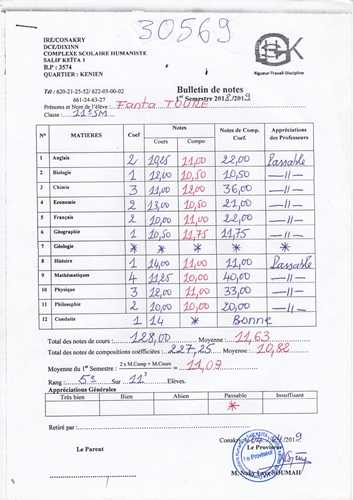 30569
IRE/CONAKRY
DCE/DIXINN
COMPLEXE SCOLAIRE HUMANISTE
SALIF KEÏTA 1
B.P : 3574
QUARTIER : KENIEN
Rigueur-Travail-Discipline
Tél : 620-21-25-52/ 622-05-00-02
661-24-63-27
Bulletin de notes
1er Semestre 2018/2019
Prénoms et Nom de l'élève : Fanta TOURE
Classe : 11e SM
N° MATIERES Coef Notes Notes de Comp. Coef. Appréciations des Professeurs
Cours Compo
1 Anglais 2 10,25 11,00 22,00 Passable
2 Biologie 1 12,00 10,50 10,50 —11—
3 Chimie 3 11,00 12,00 36,00 —11—
4 Economie 2 13,00 10,50 21,00 —11—
5 Français 2 10,00 11,00 22,00 —11—
6 Géographie 1 10,50 11,75 11,75 —11—
7 Géologie * * * * *
8 Histoire 1 14,00 11,00 11,00 Passable
9 Mathématiques 4 11,25 10,00 40,00 —11—
10 Physique 3 12,00 11,00 33,00 —11—
11 Philosophie 2 10,00 10,00 20,00 —11—
12 Conduite 1 14 * Bonne
Total des notes de cours : 128,00 Moyenne : 11,63
Total des notes de compositions coéfficiées : 227,25 Moyenne : 10,82
Moyenne du 1er Semestre : 2 x M.Comp + M.Cours = 11,09
3
Rang : 5e Sur 11 Elèves.
Appréciations Générales
Très bien Bien Assez bien Passable Insuffisant
*
Retiré par :
Conakry
Le Parent
Le Proviseur
Le Proviseur